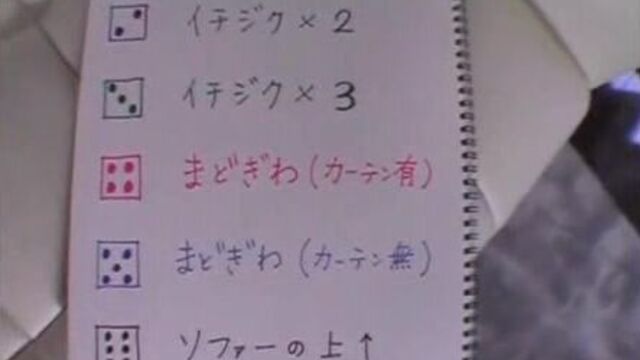 イチジク×2
イチジク×3
まどぎわ(カーテン有)
まどぎわ(カーテン無)
ソファーの上↑